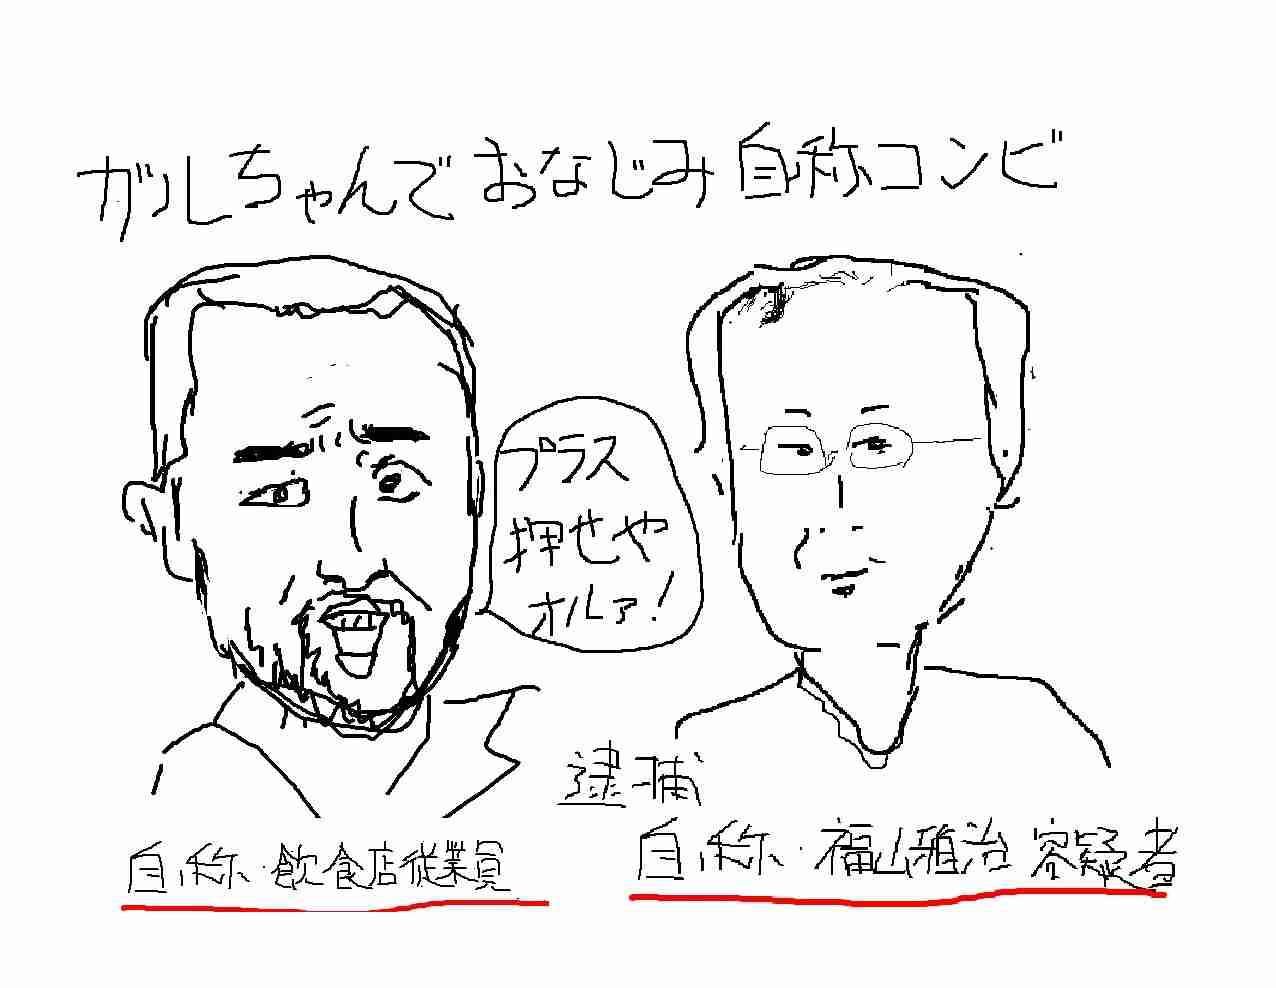 ガルちゃんでおなじみ自称コンビ
プラス
押せや
オルァ!
逮捕
自称・飲食店従業員
自称・福山雅治容疑者